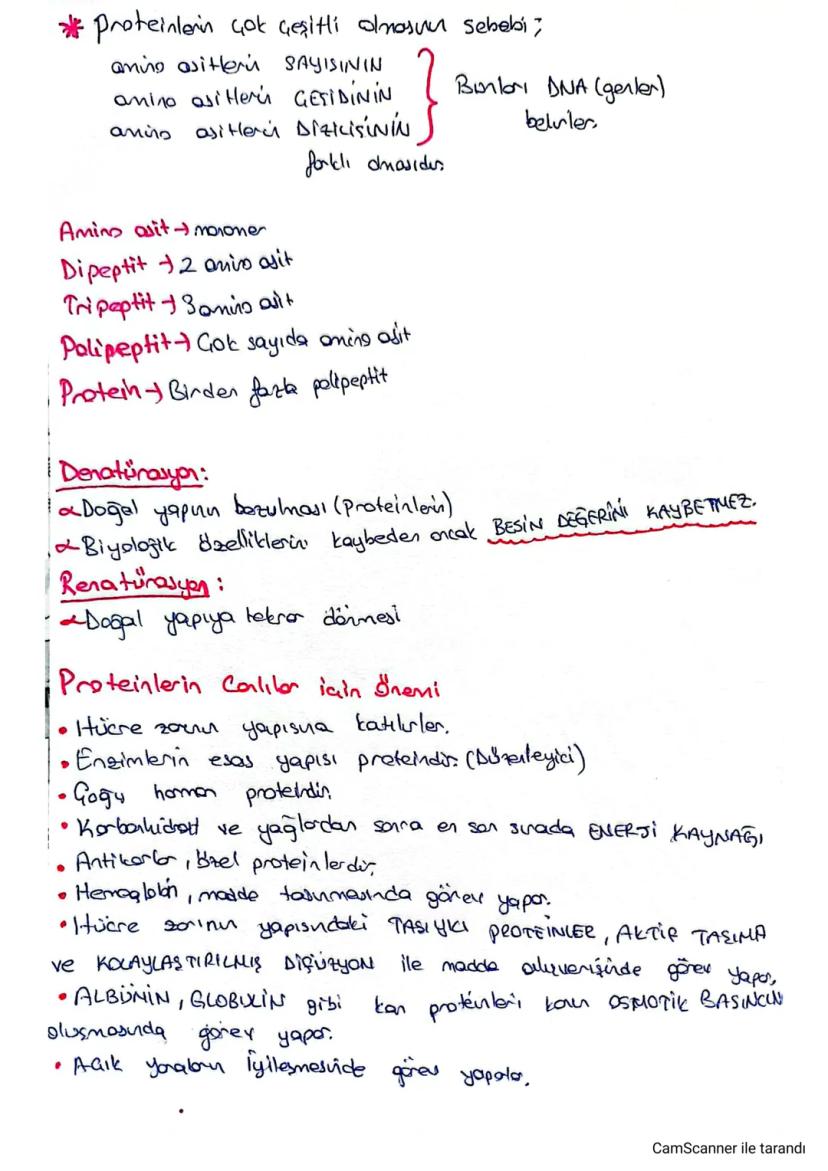 * Proteinlerin çok çeşitli olmasının sebebi;
amino asitlerin SAYISININ
amino asitlerin ÇEŞİDİNİN
amino asitlerin DİZİLİŞİNİN
farklı olmasıdır.
Bunları DNA (genler)
belirler.
Amino asit → monomer
Dipeptit → 2 amino asit
Tripeptit → 3 amino asit
Polipeptit → Çok sayıda amino asit
Protein → Birden fazla polipeptit
Denatürasyon:
Doğal yapının bozulması (Proteinlerin)
Biyolojik özelliklerin kaybeden ancak BESİN DEĞERİNİ KAYBETMEZ.
Renatürasyon:
Doğal yapıya tekrar dönmesi
Proteinlerin Canlılar için Önemi
• Hücre zarının yapısına katılırlar.
• Enzimlerin esas yapısı proteindir. (Düzenleyici)
• Çoğu hormon proteindir.
• Karbonhidrat ve yağlardan sonra en son sırada ENERJİ KAYNAĞI
• Antikorlar, özel proteinlerdir.
• Hemoglobin, madde taşınmasında görev yapar.
• Hücre zarının yapısındaki TAŞIYICI PROTEİNLER, AKTİF TAŞIMA
ve KOLAYLAŞTIRILMIŞ DİFÜZYON ile madde alışverişinde görev yapar.
• ALBÜNİN, GLOBULİN gibi kan proteinleri kanın OSMOTİK BASINCIN
oluşmasında görev yapar.
• Açık yaraların İyileşmesinde görev yapar.
CamScanner ile tarandı